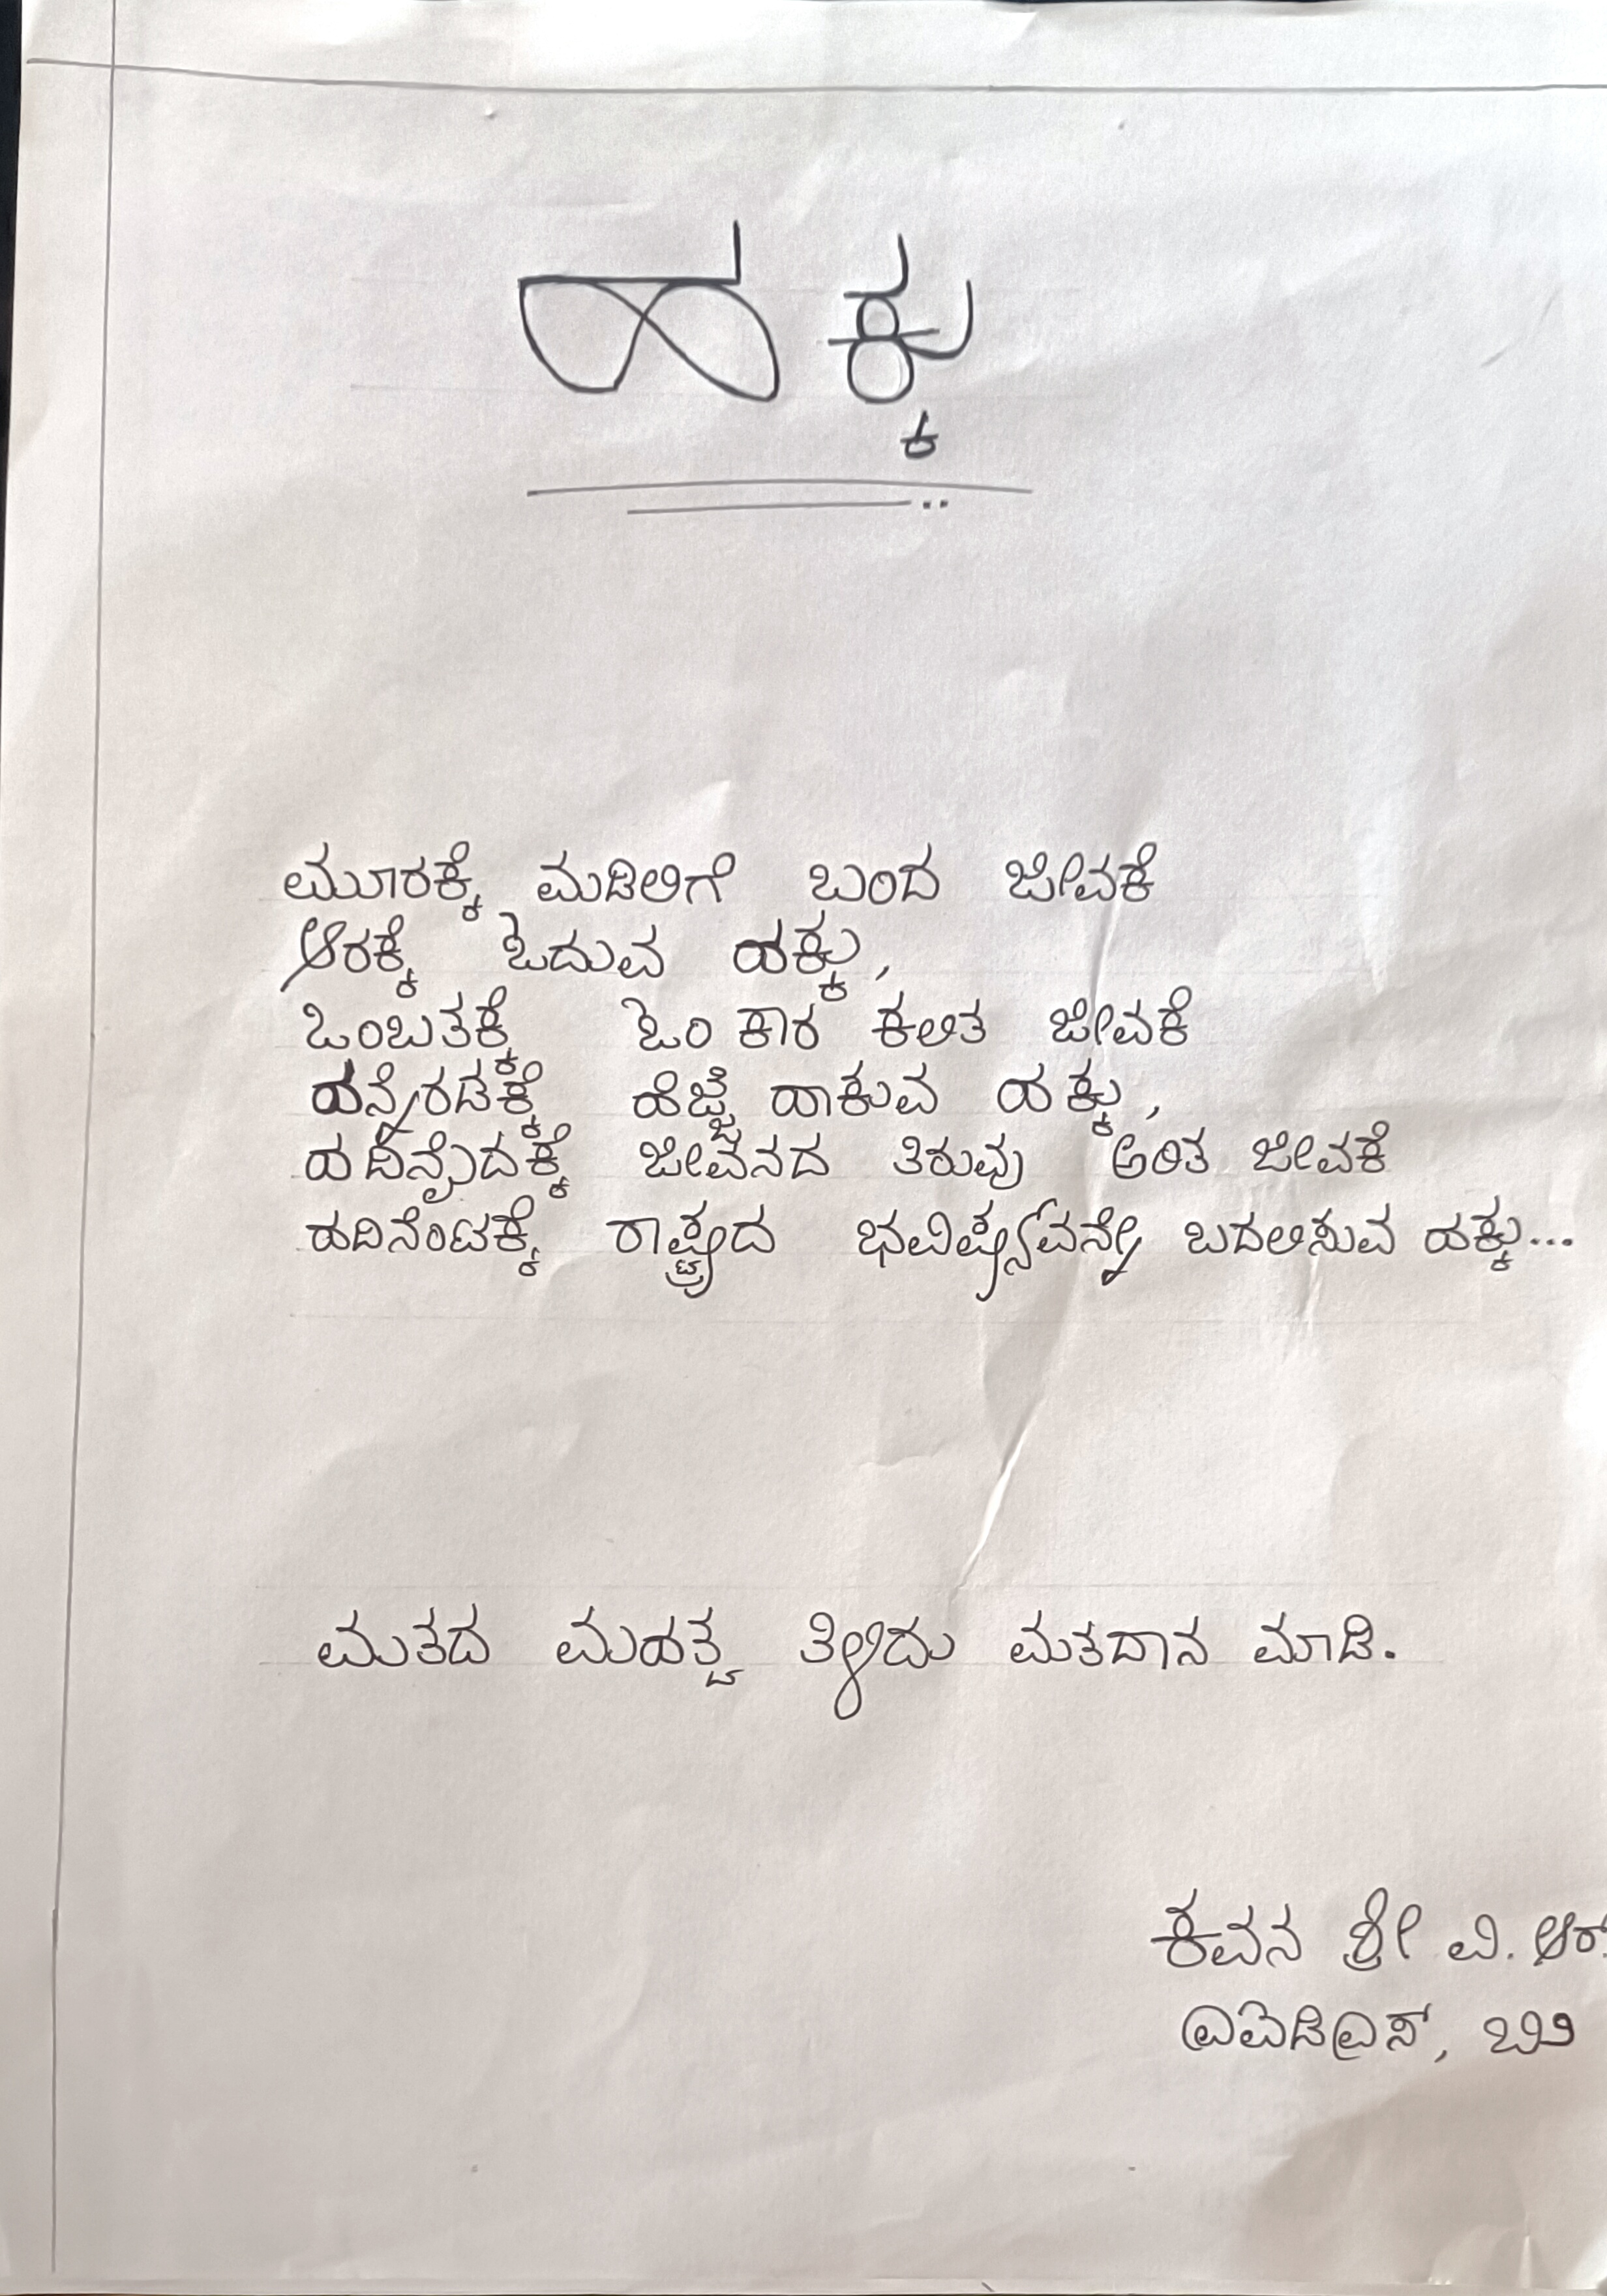 ಹಕ್ಕು
ಮೂರಕ್ಕೆ ಮಡಿಲಿಗೆ ಬಂದ ಜೀವಕೆ
ಆರಕ್ಕೆ ಓದುವ ಹಕ್ಕು,
ಒಂಬತಕ್ಕೆ ಓಂ ಕಾರ ಕಲಿತ ಜೀವಕೆ
ಹನ್ನೆರಡಕ್ಕೆ ಹೆಜ್ಜೆ ಹಾಕುವ ಹಕ್ಕು,
ಹದಿನೈದಕ್ಕೆ ಜೀವನದ ತಿರುವು ಅರಿತ ಜೀವಕೆ
ಹದಿನೆಂಟಕ್ಕೆ ರಾಷ್ಟ್ರದ ಭವಿಷ್ಯವನ್ನೇ ಬದಲಿಸುವ ಹಕ್ಕು...
ಮತದ ಮಹತ್ವ ತಿಳಿದು ಮತದಾನ ಮಾಡಿ.
ಕವನ ಶ್ರೀ ವಿ. ಆರ್.